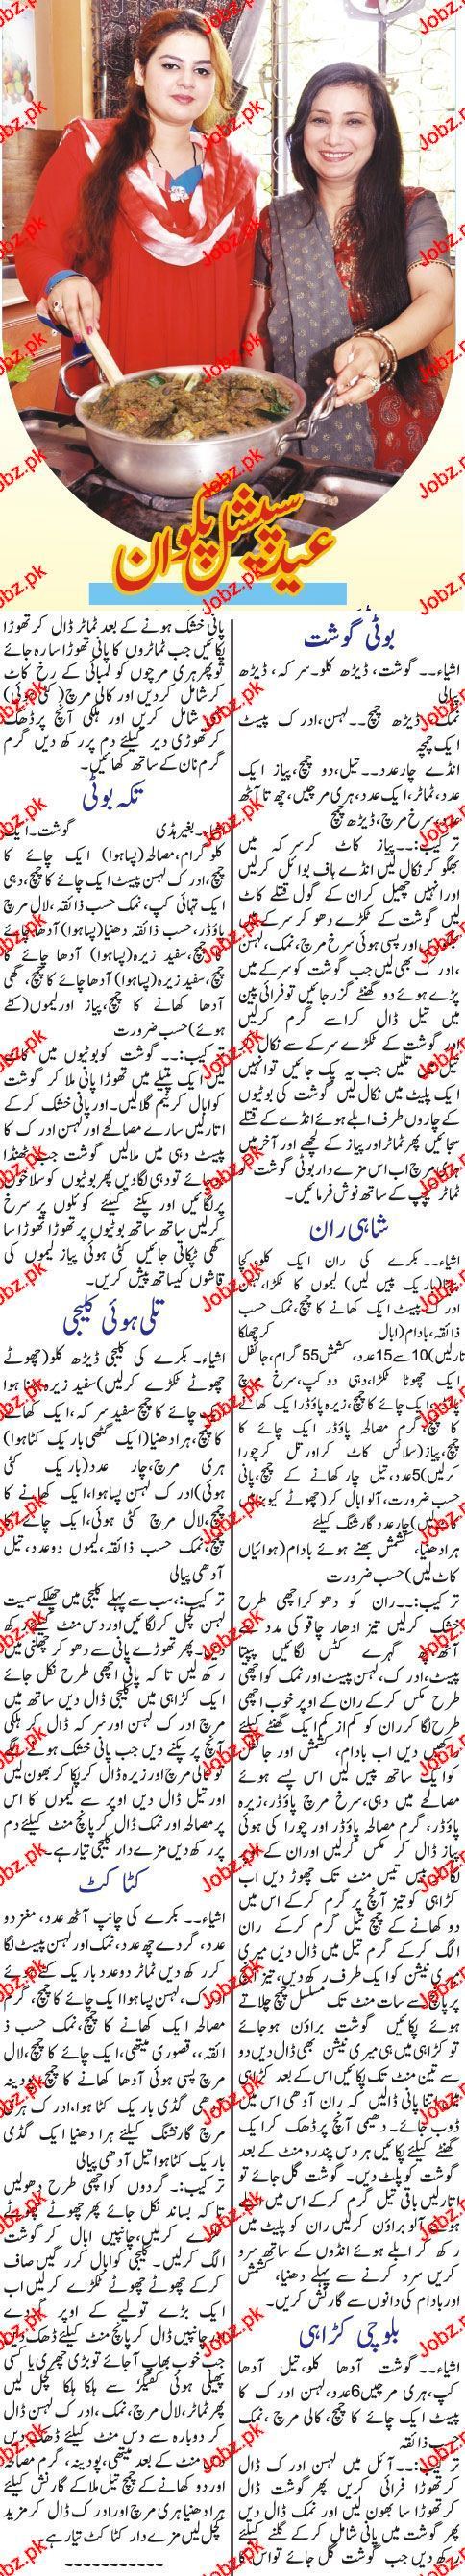 عید سپیشل پکوان
بوٹی گوشت
اشیاء۔۔ گوشت، ڈیڑھ کلو۔سرکہ، ڈیڑھ
پیالی
نمک، ڈیڑھ چمچ۔۔لہسن،ادرک پیسٹ
ایک چمچہ
انڈے چارعدد۔۔تیل،دو چمچ،پیاز ایک
عدد،ٹماٹر،ایک عدد،ہری مرچیں،چھ تاآٹھ
عدد،سرخ مرچ،ڈیڑھ چمچ
ترکیب:۔۔پیاز کاٹ کرسرکہ میں
بھگو کرنکال لیں انڈے ہاف بوائل کرلیں
اورانہیں چھیل کران کے گول قتلے کاٹ
لیں گوشت کے ٹکڑے دھو کر سرکے میں
بھگودیں اورپسی ہوئی سرخ مرچ،نمک،لہسن
،ادرک بھی لیں جب گوشت کوسرکے میں
پڑے ہوئے دو گھنٹے گزرجائیں توفرائی پین
میں تیل ڈال کراسے گرم کرلیں
اور گوشت کے ٹکڑے سرکے سے نکال کر
تیل میں تلیں جب یہ پک جائیں توانہیں
ایک پلیٹ میں نکال لیں گوشت کی بوٹیوں
کے چاروں طرف ابلے ہوئے انڈے کے قتلے
سجائیں پھرٹماٹراورپیاز کے لچھے اور آخرمیں
ہری مرچ اب اس مزے داربوٹی گوشت کو
ٹماٹر کیچپ کے ساتھ نوش فرمائیں۔
شاہی ران
اشیاء۔۔بکرے کی ران ایک کلو،کچا
پپیتا(باریک پیس لیں) لیموں کا ٹکڑا،لہسن
ادرک پیسٹ ایک کھانے کا چمچ،نمک حسب
ذائقہ،بادام(ابال کرچھلکا
تارلیں)10سے15عدد، کشمش55گرام،جائفل
ایک چھوٹا ٹکڑا،دہی دوکپ،سرخ مرچ
پاؤڈرایک چائے کا چمچ،زیرہ پاؤڈرایک کھانے
کا چمچ،گرم مصالحہ پاؤڈر ایک چائے کا
چمچ،پیاز(سلائس کاٹ کراورتل کرچورا
کرلیں)5عدد،تیل چارکھانے کے چمچ،پانی
حسب ضرورت،آلوابال کر(چھوٹے کیوبزمیں
کاٹ لیں)چارعدد گارنشنگ کیلئے
ہرادھنیا، کشمش بھنے ہوئے بادام(ہوائیاں
کاٹ لیں)حسب ضرورت
ترکیب:۔۔ران کو دھوکراچھی طرح
خشک کرلیں تیز ادھار چاقو کی مدد سے
آٹھ چھ گہرے کٹس لگائیں پپیتا
پیسٹ،ادرک،لہسن پیسٹ اور نمک کواچھی
طرح مکس کرکے ران کے اوپر خوب اچھی
طرح لگاکرران کو کم ازکم ایک گھنٹے کیلئے
رکھیں دیں اب بادام، کشمش اور جائفل
کوایک ساتھ پیس لیں اس پسے ہوئے
مصالحے میں دہی،سرخ مرچ پاؤڈر،زیرہ
پاؤڈر،گرم مصالحہ پاؤڈر اور چورا کی ہوئی
پیاز ڈال کر مکس کرلیں اوران کے اوپر
لگاکر بیس تیس منٹ تک چھوڑ دیں اب
کڑاہی کوتیز آنچ پر گرم کرکے اس میں
دوکھانے کے چمچ تیل گرم کرکے ران
الگ کرکے گرم تیل میں ڈال دیں میری
میری نیشن کوایک طرف رکھ دیں،تیز آنچ
پرپانچ سے سات منٹ تک مسلسل چمچ چلاتے
ہوئے پکائیں گوشت براؤن ہوجائے
تو کڑاہی میں ہی میری نیشن بھی ڈال دیں دو
سے تین منٹ تک پکائیں اس کے بعد کڑاہی
میں اتناپانی ڈالیں کہ ران آدھی اس میں
ڈوب جائے۔دھیمی آنچ پرڈھک کرایک
گھنٹے کیلئے پکائیں ہر دس پندرہ منٹ کے بعد
گوشت کوپلٹ دیں۔گوشت گل جائے تو
اتارلیں باقی تیل گرم کرکے اس میں ابلے
ہوئے آلوبراؤن کرلیں ران کو پلیٹ میں
رکھ کر ابلے ہوئے انڈوں کے ساتھ سرو
کریں سرد کرنے سے پہلے دھنیا، کشمش
اوربادام کی دانوں سے گارنش کریں۔
بلوچی کڑاہی
اشیاء۔۔گوشت آدھا کلو،تیل آدھا
کپ،ہری مرچیں6عدد،لہسن ادرک کا
پیسٹ ایک چائے کا چمچ،کالی مرچ ،نمک
حسب ذائقہ
ترکیب:۔۔آئل میں لہسن ادرک ڈال
کرتھوڑا فرائی کریں پھر گوشت ڈال
کرتھوڑا سا بھون لیں اور نمک ڈال دیں
پھر گوشت میں پانی شامل کرکے گلنے کیلئے
رکھ دیں جب گوشت گل جائے تواس کا
پانی خشک ہونے کے بعد ٹماٹر ڈال کر تھوڑا
پکائیں جب ٹماٹروں کا پانی تھوڑا سا رہ جائے
توپھر ہری مرچوں کو لمبائی کے رخ کاٹ
کرشامل کردیں اور کالی مرچ(کٹی ہوئی)
بھی شامل کریں اور ہلکی آنچ پرڈھک
کرتھوڑی دیر کیلئے دم پر رکھ دیں گرم
گرم نان کے ساتھ کھائیں۔
تکہ بوٹی
اشیاء۔بغیرہڈی گوشت۔ایک
کلوگرام،مصالحہ(پساہوا) ایک چائے کا
چمچ،ادرک لہسن پیسٹ ایک چائے کا چمچ،دہی
ایک تہائی کپ،نمک حسب ذائقہ،لال مرچ
پاؤڈر،حسب ذائقہ دھنیا(پساہوا) آدھاچائے
کا چمچ،سفید زیرہ(پساہوا) آدھا چائے کا
چمچ،سفید زیرہ(پساہوا) آدھاچائے کا چمچ،گھی
آدھا کھانے کا چمچ،پیاز اورلیموں(کٹے
ہوئے)حسب ضرورت
ترکیب:۔۔گوشت کوبوٹیوں میں کاٹ
لیں ایک پتیلے میں تھوڑا پانی ملا کر گوشت
کوابال کرنیم گلالیں۔اورپانی خشک کرکے
اتارلیں سارے مصالحے اور لہسن ادرک کا
پیسٹ دہی میں ملالیں گوشت جب ٹھنڈا
ہوجائے تودہی لگادیں پھر بوٹیوں کوسلاخوں
پرلگائیں اور پکنے کیلئے کوئلوں پر سرخ
کرلیں ساتھ ساتھ بوٹیوں پر تھوڑا تھوڑا سا
گھی ٹپکاتی جائیں کٹی ہوئی پیاز لیموں کی
قاشوں کیساتھ پیش کریں۔
تلی ہوئی کلیجی
اشیاء۔ بکرے کی کلیجی ڈیڑھ کلو(چھوٹے
چھوٹے ٹکڑے کرلیں)سفید زیرہ بھنا ہوا
ایک چائے کا چمچ سفیدسرکہ،ایک کھانے
کا چمچ،ہرادھنیا(ایک گٹھی باریک کٹاہوا)
ہری مرچ،چار عدد(باریک کٹی
ہوئی)ادرک لہسن پساہوا،ایک کھانے کا
چمچ،لال مرچ کٹی ہوئی،ایک چائے کا
چمچ،نمک حسب ذائقہ،لیموں دوعدد،تیل
آدھی پیالی
ترکیب:۔،سب سے پہلے کلیجی میں چھلکے سمیت
لہسن کچل کرلگائیں اور دس منٹ کیلئے رکھ
دیں۔پھر تھوڑے پانی سے دھوکر چھلنی میں
رکھ لیں تاکہ پانی اچھی طرح نکل جائے
ایک کڑاہی میں کلیجی ڈال دیں ساتھ میں
مرچ ادرک لہسن اور سرکہ ڈال کر ہلکی
آنچ پر پکنے دیں جب پانی خشک ہونے لگے
تو کالی مرچ اور زیرہ ڈال کرپکا کر بھون لیں
اورتیل ڈال دیں اوپر سے لیموں کا اس
پرمصالحہ اور نمک ڈال کرپانچ منٹ کیلئے دم
پررکھ دیں مزے دار کلیجی تیارہے۔
کٹا کٹ
اشیاء۔۔ بکرے کی چانپ آٹھ عدد،مغز دو
عدد،گردے چھ عدد،نمک اورلہسن پیسٹ لگا
کررکھ دیں ٹماٹر دو عدد باریک کٹے ہوئے
ادرک،لہسن پساہواایک چائے کا چمچ،گرم
مصالحہ ایک کھانے کا چمچ،نمک حسب ذ
ائقہ،،قصوری میتھی،ایک چائے کا چمچ،لال
مرچ پسی ہوئی آدھا کھانے کا چمچ،پودینہ
آدھی گڈی باریک کٹا ہوا،ادرک ہری
مرچ گارنشنگ کیلئے ہرا دھنیا ایک گڈی
باریک کٹاہواتیل آدھی پیالی
ترکیب:۔گردوں کواچھی طرح دھولیں
تاکہ بساند نکل جائے پھر چھوٹے چھوٹے
ٹکڑے کرلیں،چانپیں ابال کر گوشت
الگ کرلیں۔کلیجی کوابال کررگیں صاف
کرکے چھوٹے چھوٹے ٹکڑے کرلیں اب
ایک بڑے تولیے کے اوپر گردے
اورچانپیں ڈال کرپانچ منٹ کیلئے ڈھک دیں
جب خوب بھاپ آجائے توبڑی چھری یا کسی
پھیلی ہوئی کفگیر سے ہلکا ہلکا کچل لیں
پھرٹماٹر،لال مرچ،نمک،ادرک لہسن ڈال
کر دوبارہ سے دس منٹ کیلئے ڈھک دیں
دس منٹ کے بعد میتھی،پودینہ،گرم مصالحہ
اور دوکھانے کے چمچ تیل ملاکے گارنش کیلئے
ہرادھنیا ہری مرچ اورادرک ڈال کرمزید
کچل لیں مزے دار کٹا کٹ تیارہے۔
Jobz.pk